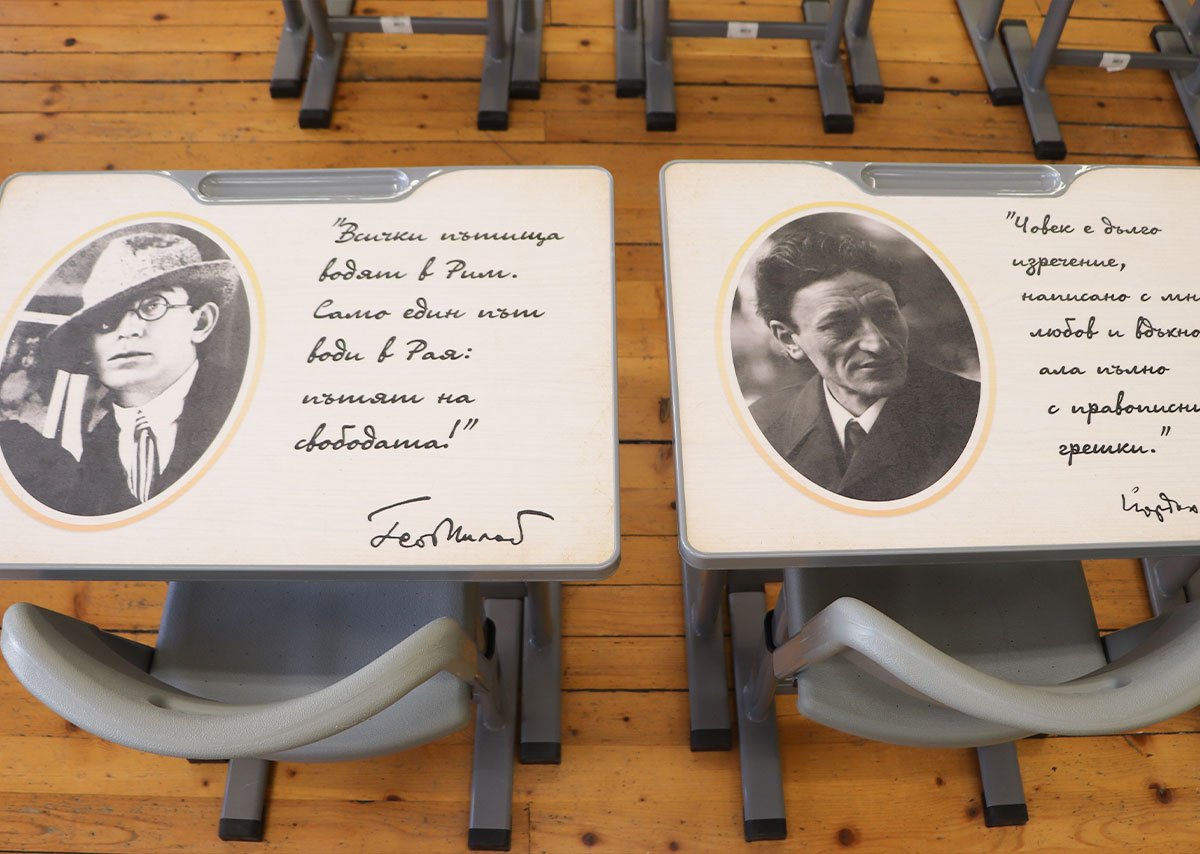 "Всички пътища
водят в Рим.
Само един път
води в Рая:
пътят на
свободата!"
Гео Милев
"Човек е дълго
изречение,
написано с
любов и
ала пълно
с правописни
грешки."